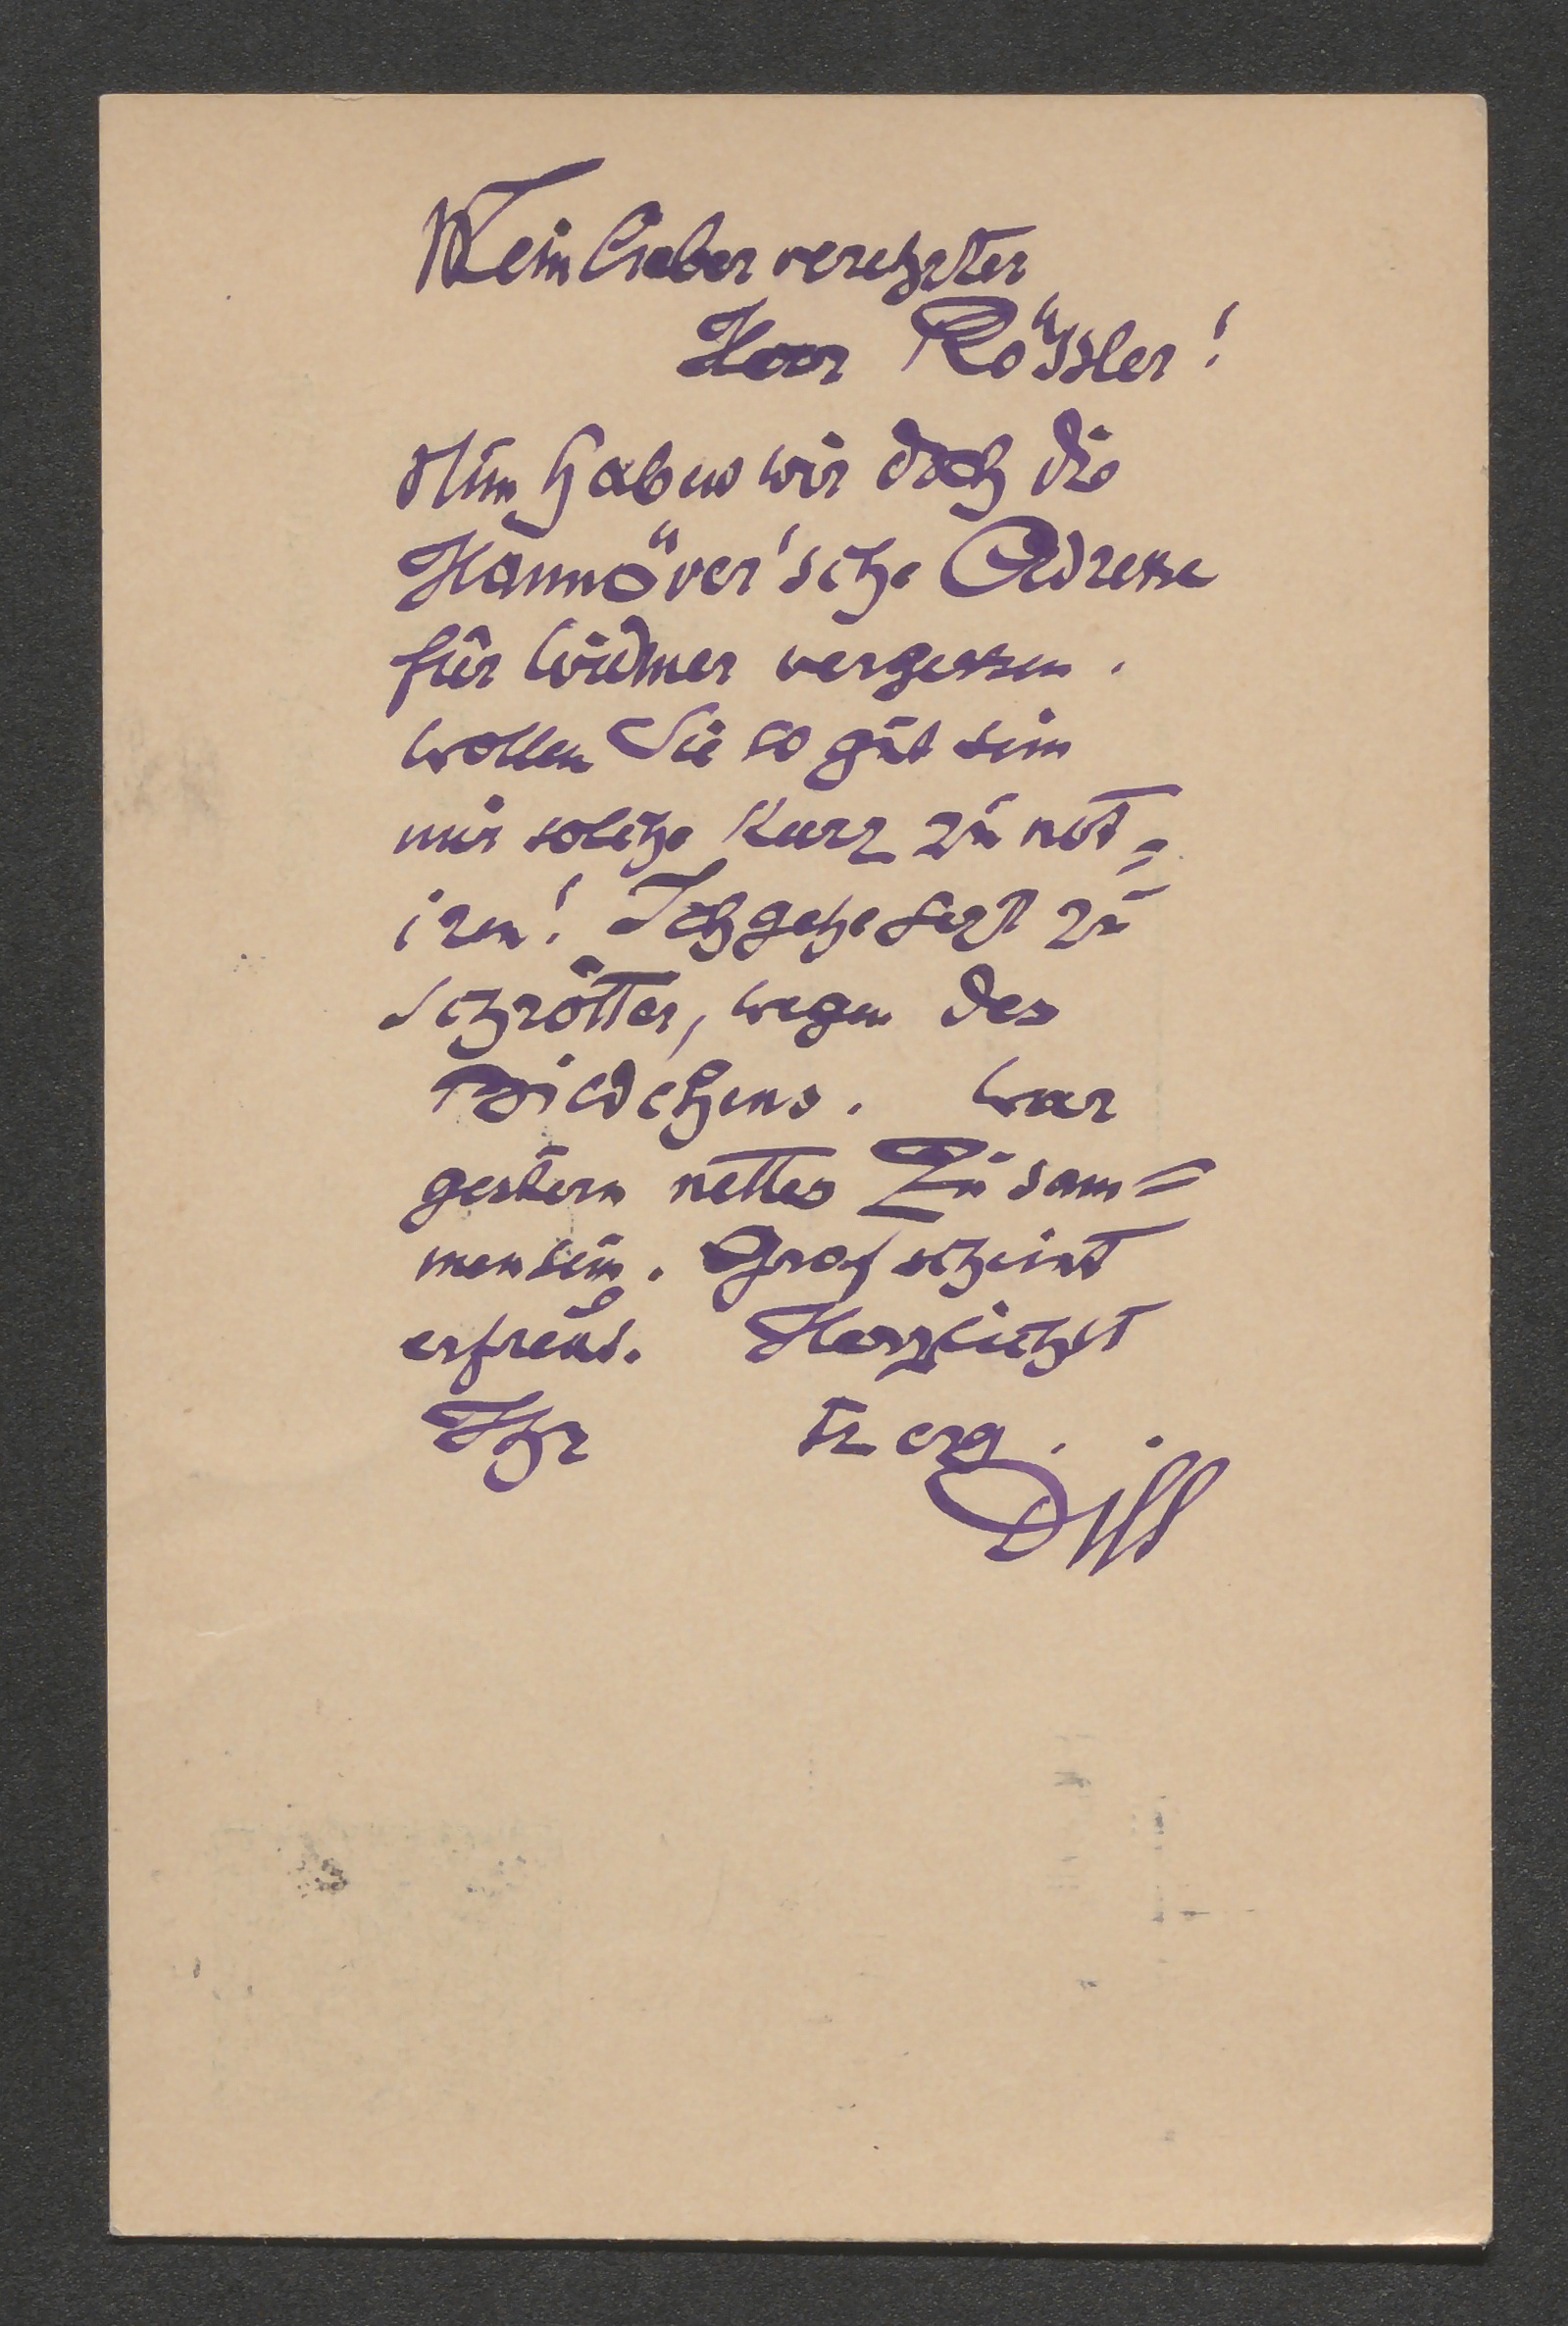 Mein lieber verehrter
Herr Rössler!
Nun haben wir doch die
Hannöver'sche Adresse
für Widmer vergessen.
Wollen Sie so gut sein
mir solche kurz zu not=
iren! Ich gehe fort zu
Schrötter, wegen des
Bildchens. War
gestern nettes Zusam=
mensein. Graf scheint
erfreut. Herzlichst
Ihr erg.
Dill